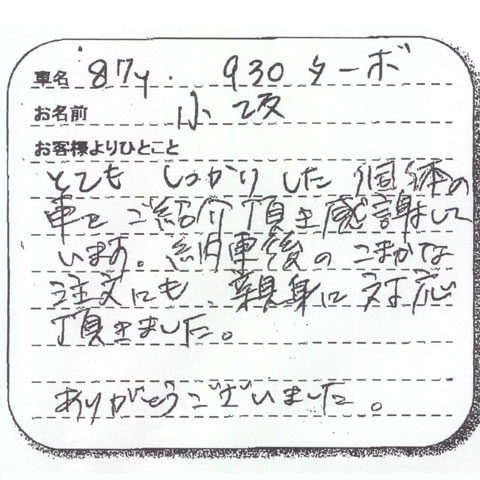 車名 87y. 930ターボ
お名前 小坂
お客様よりひとこと
とてもしっかりした個体の
車をご紹介頂き感謝して
います。納車後のこまかな
注文にも、親身に対応
頂きました。
ありがとうございました。